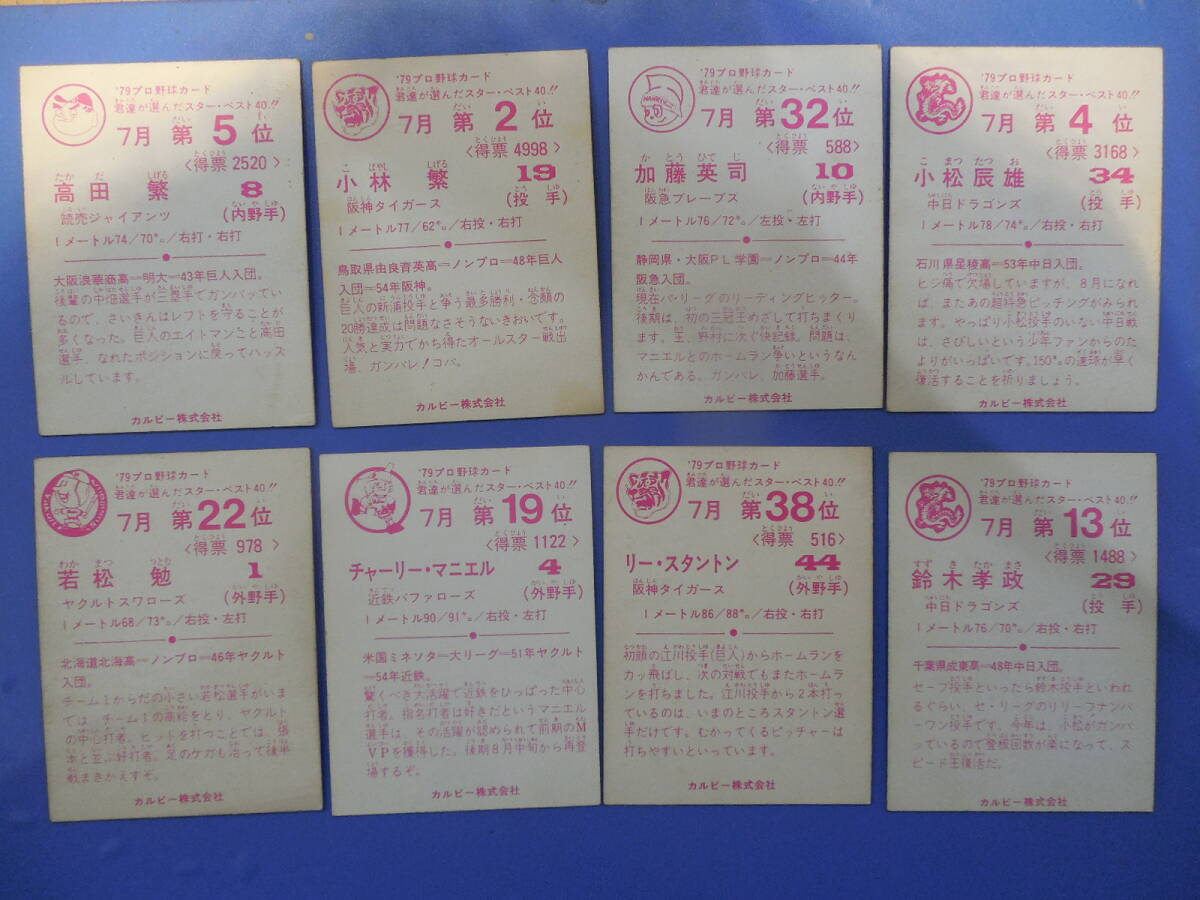 '79プロ野球カード
君達が選んだスター・ベスト40.!!
7月 第5位
〈得票 2520〉
高田 繁 8
読売ジャイアンツ (内野手)
1メートル74/70㌔/右投・右打
大阪浪華商高―明大―43年巨人入団。
後輩の中畑選手が三塁手でガンバッてい
るので、さいきんはレフトを守ることが
多くなった。巨人のエイトマンこと高田
選手、なれたポジションに戻ってハッス
ルしています。
カルビー株式会社
'79プロ野球カード
君達が選んだスター・ベスト40.!!
7月 第2位
〈得票 4998〉
小林 繁 19
阪神タイガース (投手)
1メートル77/62㌔/右投・右打
鳥取県由良育英高―ノンプロ―48年巨人
入団―54年阪神。
巨人の新浦投手と争う最多勝利・念願の
20勝達成は問題なさそうないきおいです。
人気と実力でかち得たオールスター戦出
場、ガンバレ!コバ。
カルビー株式会社
'79プロ野球カード
君達が選んだスター・ベスト40.!!
7月 第32位
〈得票 588〉
加藤英司 10
阪急ブレーブス (内野手)
1メートル76/72㌔/左投・左打
静岡県・大阪PL学園―ノンプロ―44年
阪急入団。
現在パ・リーグのリーディングヒッター。
後期は、初の三冠王めざして打ちまくり
ます。王、野村に次ぐ快記録。問題は、
マニエルとのホームラン争いというなん
かんである。ガンバレ、加藤選手。
カルビー株式会社
'79プロ野球カード
君達が選んだスター・ベスト40.!!
7月 第4位
〈得票 3168〉
小松辰雄 34
中日ドラゴンズ (投手)
1メートル78/74㌔/右投・右打
石川県星稜高―53年中日入団。
ヒジ痛で欠場していますが、8月になれ
ば、またあの超特急ピッチングがみられ
ます。やっぱり小松投手のいない中日戦
は、さびしいという少年ファンからのた
よりがいっぱいです。150㌔の速球が早く
復活することを祈りましょう。
カルビー株式会社
'79プロ野球カード
君達が選んだスター・ベスト40.!!
7月 第22位
〈得票 978〉
若松 勉 1
ヤクルトスワローズ (外野手)
1メートル68/73㌔/右投・左打
北海道北海高―ノンプロ―46年ヤクルト
入団。
チーム1からだの小さい若松選手がいま
では、チーム1の高給をとり、ヤクルト
の中心打者。ヒットを打つことでは、張
本と並ぶ好打者。足のケガも治って後半
戦まきかえすぞ。
カルビー株式会社
'79プロ野球カード
君達が選んだスター・ベスト40.!!
7月 第19位
〈得票 1122〉
チャーリー・マニエル 4
近鉄バファローズ (外野手)
1メートル90/91㌔/右投・左打
米国ミネソタ―大リーグ―51年ヤクルト
―54年近鉄。
驚くべき大活躍で近鉄をひっぱった中心
打者。指名打者は好きだというマニエル
選手は、その活躍が認められて前期のM
VPを獲得した。後期8月中旬から再登
場するぞ。
カルビー株式会社
'79プロ野球カード
君達が選んだスター・ベスト40.!!
7月 第38位
〈得票 516〉
リー・スタントン 44
阪神タイガース (外野手)
1メートル86/88㌔/右投・右打
初顔の江川投手(巨人)からホームランを
カッ飛ばし、次の対戦でもまたホームラン
を打ちました。江川投手から2本打っ
ているのは、いまのところスタントン選
手だけです。むかってくるピッチャーは
打ちやすいといっています。
カルビー株式会社
'79プロ野球カード
君達が選んだスター・ベスト40.!!
7月 第13位
〈得票 1488〉
鈴木孝政 29
中日ドラゴンズ (投手)
1メートル76/70㌔/右投・右打
千葉県成東高―48年中日入団。
セーフ投手といったら鈴木投手といわれ
るぐらい、セ・リーグのリリーフナンバ
ーワン投手です。今年は、小松がガンバ
っているので登板回数が楽になって、ス
ピード王復活だ。
カルビー株式会社